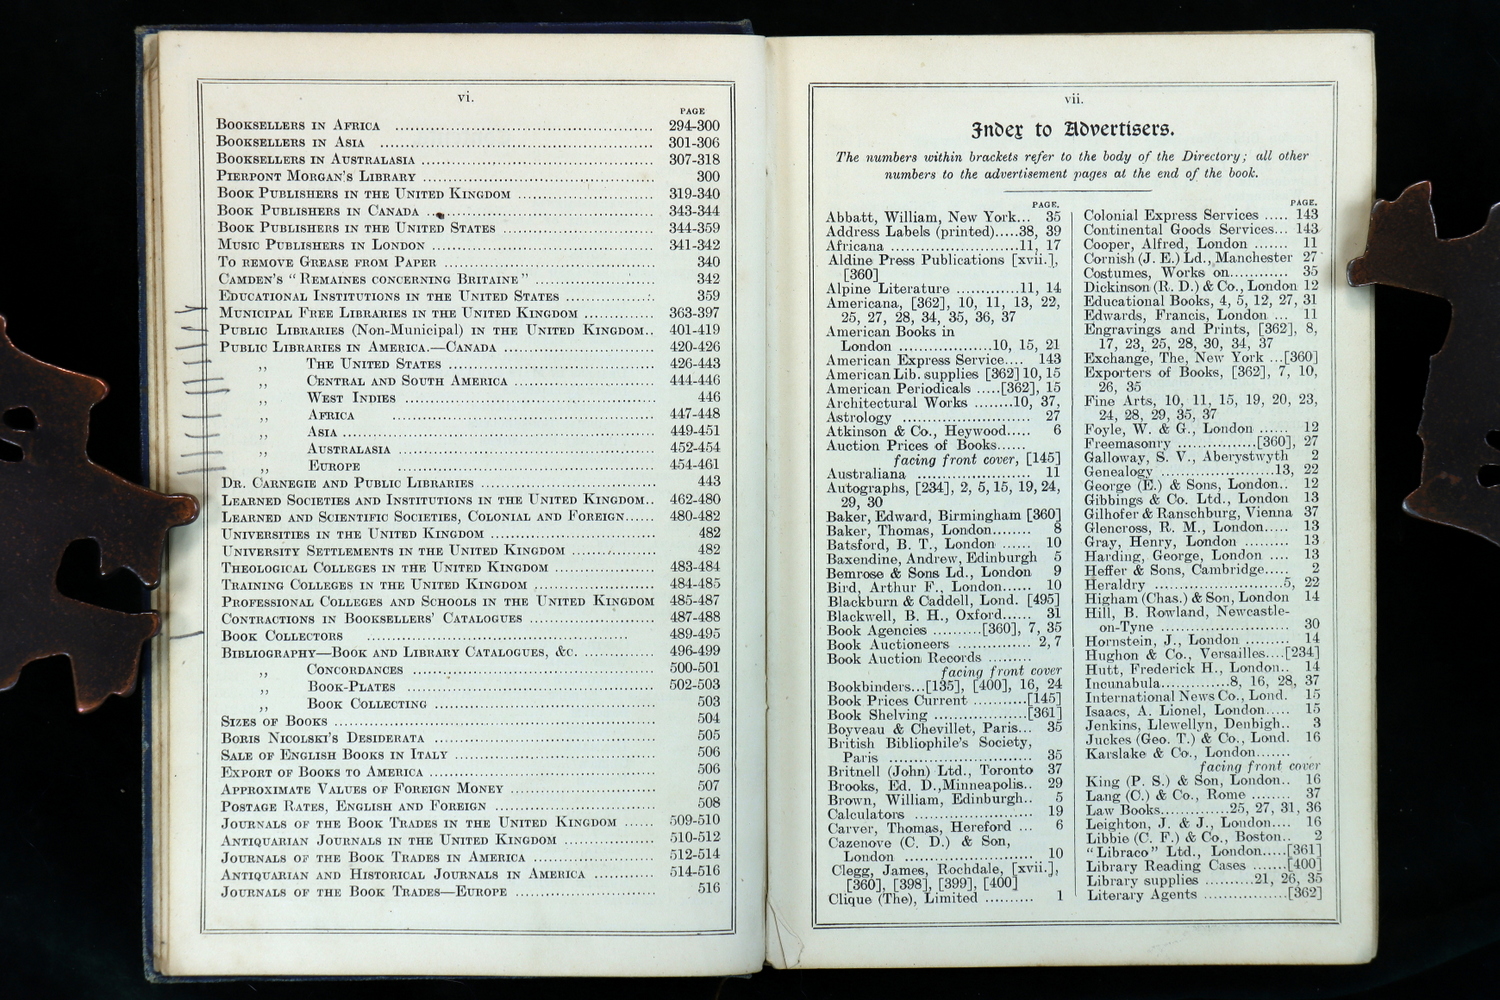 vi.
PAGE
BOOKSELLERS IN AFRICA ........ 294-300
BOOKSELLERS IN ASIA ........ 301-306
BOOKSELLERS IN AUSTRALASIA ........ 307-318
PIERPONT MORGAN'S LIBRARY ........ 300
BOOK PUBLISHERS IN THE UNITED KINGDOM ........ 319-340
BOOK PUBLISHERS IN CANADA ........ 343-344
BOOK PUBLISHERS IN THE UNITED STATES ........ 344-359
MUSIC PUBLISHERS IN LONDON ........ 341-342
TO REMOVE GREASE FROM PAPER ........ 340
CAMDEN'S "REMAINES CONCERNING BRITAINE" ........ 342
EDUCATIONAL INSTITUTIONS IN THE UNITED STATES ........ 359
MUNICIPAL FREE LIBRARIES IN THE UNITED KINGDOM ........ 363-397
PUBLIC LIBRARIES (Non-Municipal) IN THE UNITED KINGDOM.. 401-419
PUBLIC LIBRARIES IN AMERICA.—CANADA ........ 420-426
,, THE UNITED STATES ........ 426-443
,, CENTRAL AND SOUTH AMERICA ........ 444-446
,, WEST INDIES ........ 446
,, AFRICA ........ 447-448
,, ASIA ........ 449-451
,, AUSTRALASIA ........ 452-454
,, EUROPE ........ 454-461
DR. CARNEGIE AND PUBLIC LIBRARIES ........ 443
LEARNED SOCIETIES AND INSTITUTIONS IN THE UNITED KINGDOM.. 462-480
LEARNED AND SCIENTIFIC SOCIETIES, COLONIAL AND FOREIGN...... 480-482
UNIVERSITIES IN THE UNITED KINGDOM ........ 482
UNIVERSITY SETTLEMENTS IN THE UNITED KINGDOM ........ 482
THEOLOGICAL COLLEGES IN THE UNITED KINGDOM ........ 483-484
TRAINING COLLEGES IN THE UNITED KINGDOM ........ 484-485
PROFESSIONAL COLLEGES AND SCHOOLS IN THE UNITED KINGDOM 485-487
CONTRACTIONS IN BOOKSELLERS' CATALOGUES ........ 487-488
BOOK COLLECTORS ........ 489-495
BIBLIOGRAPHY—BOOK AND LIBRARY CATALOGUES, &c. ........ 496-499
,, CONCORDANCES ........ 500-501
,, BOOK-PLATES ........ 502-503
,, BOOK COLLECTING ........ 503
SIZES OF BOOKS ........ 504
BORIS NICOLSKI'S DESIDERATA ........ 505
SALE OF ENGLISH BOOKS IN ITALY ........ 506
EXPORT OF BOOKS TO AMERICA ........ 506
APPROXIMATE VALUES OF FOREIGN MONEY ........ 507
POSTAGE RATES, ENGLISH AND FOREIGN ........ 508
JOURNALS OF THE BOOK TRADES IN THE UNITED KINGDOM ...... 509-510
ANTIQUARIAN JOURNALS IN THE UNITED KINGDOM ........ 510-512
JOURNALS OF THE BOOK TRADES IN AMERICA ........ 512-514
ANTIQUARIAN AND HISTORICAL JOURNALS IN AMERICA ........ 514-516
JOURNALS OF THE BOOK TRADES—EUROPE ........ 516
vii.
Index to Advertisers.
The numbers within brackets refer to the body of the Directory; all other
numbers to the advertisement pages at the end of the book.
PAGE.
Abbatt, William, New York... 35
Address Labels (printed).....38, 39
Africana ........11, 17
Aldine Press Publications [xvii.],
[360]
Alpine Literature ........11, 14
Americana, [362], 10, 11, 13, 22,
25, 27, 28, 34, 35, 36, 37
American Books in
London ........10, 15, 21
American Express Service.... 143
American Lib. supplies [362] 10, 15
American Periodicals .....[362], 15
Architectural Works ........10, 37,
Astrology ........ 27
Atkinson & Co., Heywood..... 6
Auction Prices of Books......
facing front cover, [145]
Australiana ........ 11
Autographs, [234], 2, 5, 15, 19, 24,
29, 30
Baker, Edward, Birmingham [360]
Baker, Thomas, London........ 8
Batsford, B. T., London ...... 10
Baxendine, Andrew, Edinburgh 5
Bemrose & Sons Ld., London 9
Bird, Arthur F., London...... 10
Blackburn & Caddell, Lond. [495]
Blackwell, B. H., Oxford...... 31
Book Agencies .........[360], 7, 35
Book Auctioneers ........ 2, 7
Book Auction Records ........
facing front cover
Bookbinders...[135], [400], 16, 24
Book Prices Current ..........[145]
Book Shelving ........[361]
Boyveau & Chevillet, Paris... 35
British Bibliophile's Society,
Paris ........ 35
Britnell (John) Ltd., Toronto 37
Brooks, Ed. D., Minneapolis.. 29
Brown, William, Edinburgh.. 5
Calculators ........ 19
Carver, Thomas, Hereford ... 6
Cazenove (C. D.) & Son,
London ........ 10
Clegg, James, Rochdale, [xvii.],
[360], [398], [399], [400]
Clique (The), Limited .......... 1
PAGE.
Colonial Express Services ..... 143
Continental Goods Services... 143
Cooper, Alfred, London ....... 11
Cornish (J. E.) Ld., Manchester 27
Costumes, Works on............ 35
Dickinson (R. D.) & Co., London 12
Educational Books, 4, 5, 12, 27, 31
Edwards, Francis, London ... 11
Engravings and Prints, [362], 8,
17, 23, 25, 28, 30, 34, 37
Exchange, The, New York ...[360]
Exporters of Books, [362], 7, 10,
26, 35
Fine Arts, 10, 11, 15, 19, 20, 23,
24, 28, 29, 35, 37
Foyle, W. & G., London ...... 12
Freemasonry ........[360], 27
Galloway, S. V., Aberystwyth 2
Genealogy ........13, 22
George (E.) & Sons, London.. 12
Gibbings & Co. Ltd., London 13
Gilhofer & Ranschburg, Vienna 37
Glencross, R. M., London..... 13
Gray, Henry, London ......... 13
Harding, George, London .... 13
Heffer & Sons, Cambridge..... 2
Heraldry ........5, 22
Higham (Chas.) & Son, London 14
Hill, B. Rowland, Newcastle-
on-Tyne ........ 30
Hornstein, J., London ......... 14
Hughon & Co., Versailles....[234]
Hutt, Frederick H., London.. 14
Incunabula............8, 16, 28, 37
International News Co., Lond. 15
Isaacs, A. Lionel, London..... 15
Jenkins, Llewellyn, Denbigh.. 3
Juckes (Geo. T.) & Co., Lond. 16
Karslake & Co., London.......
facing front cover
King (P. S.) & Son, London.. 16
Lang (C.) & Co., Rome ........ 37
Law Books............25, 27, 31, 36
Leighton, J. & J., London.... 16
Libbie (C. F.) & Co., Boston.. 2
"Libraco" Ltd., London.....[361]
Library Reading Cases .......[400]
Library supplies ..........21, 26, 35
Literary Agents ........[362]